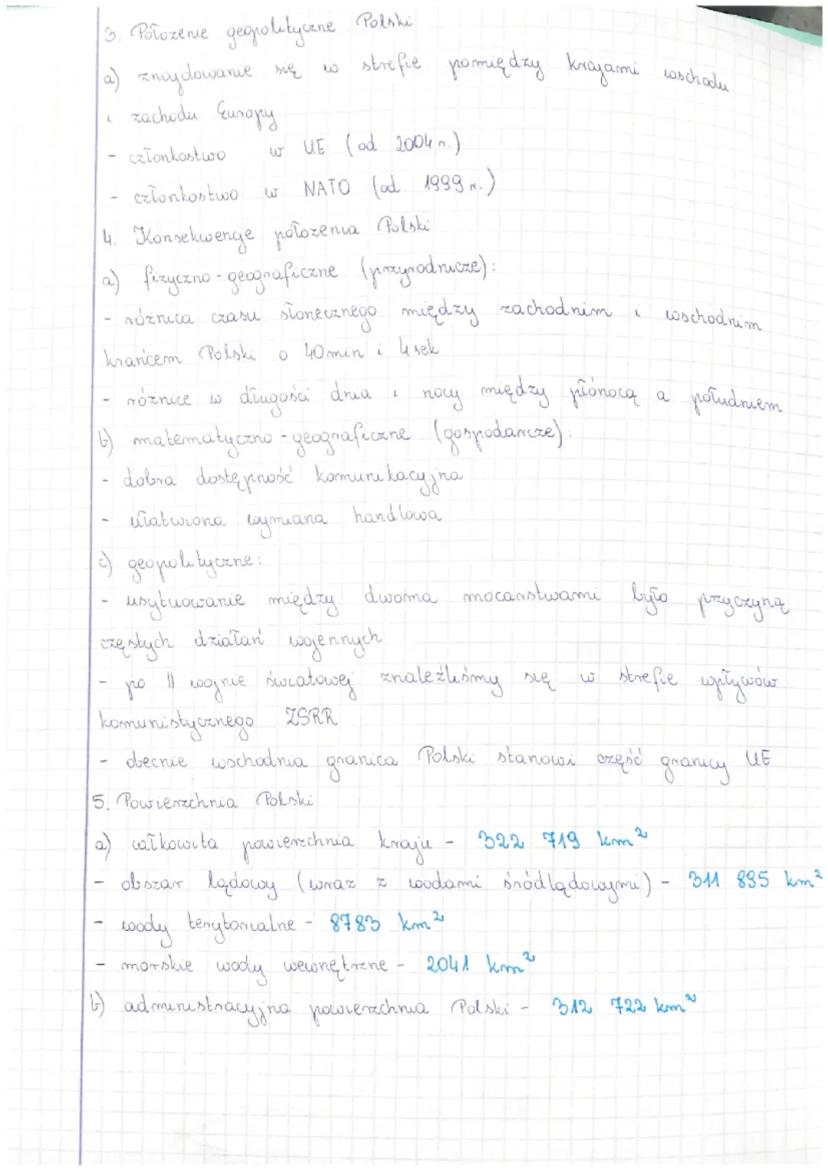 3. Położenie geopolityczne Polski
a) znajdowanie się w strefie pomiędzy krajami wschodu
i zachodu Europy
- członkostwo w UE (od 2004 r.)
- członkostwo w NATO (od 1999 r.)
4. Konsekwencje położenia Polski
a) fizyczno-geograficzne (przyrodnicze):
- różnica czasu słonecznego między zachodnim i wschodnim
krańcem Polski o 40 min i 4 sek
- różnice w długości dnia i nocy między północą a południem
b) matematyczno-geograficzne (gospodarcze):
- dobra dostępność komunikacyjna
- ułatwiona wymiana handlowa
c) geopolityczne:
- usytuowanie między dwoma mocarstwami było przyczyną
częstych działań wojennych
- po II wojnie światowej znaleźliśmy się w strefie wpływów
komunistycznego ZSRR
- obecnie wschodnia granica Polski stanowi część granicy UE
5. Powierzchnia Polski
a) całkowita powierzchnia kraju - 322 719 km²
- obszar lądowy (wraz z wodami śródlądowymi) - 311 895 km²
- wody terytorialne - 8783 km²
- morskie wody wewnętrzne - 2041 km²
b) administracyjna powierzchnia Polski - 312 722 km²